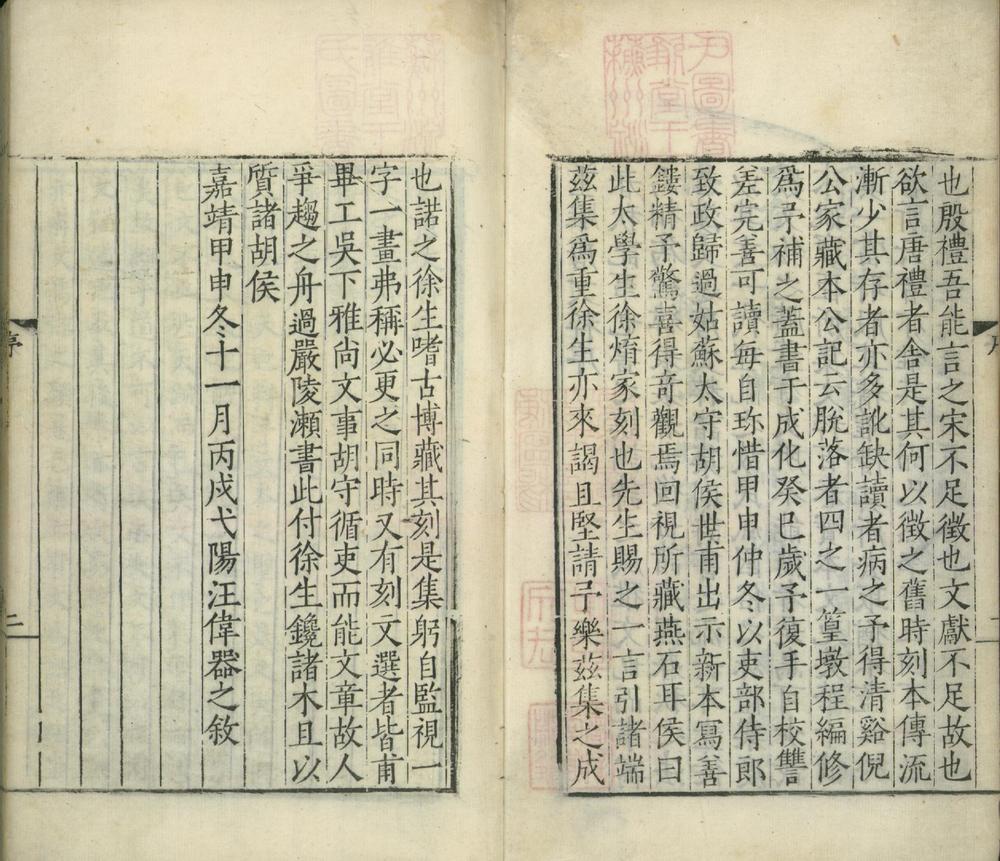 也殷禮吾能言之宋不足徵也文獻不足故也
欲言唐禮者舍是其何以徵之舊時刻本傳流
漸少其存者亦多訛缺讀者病之予得清谿倪
公家藏本公記云脫落者四之一篁墩程編修
爲予補之蓋書于成化癸巳歲予復手自校讐
差完善可讀每自珎惜甲申仲冬以吏部侍郎
致政歸過姑蘇太守胡侯世甫出示新本寫善
鏤精予驚喜得竒觀焉回視所藏燕石耳侯曰
此太學生徐焴家刻也先生賜之一言引諸端
茲集爲重徐生亦來謁且堅請予樂茲集之成
也諾之徐生嗜古博藏其刻是集躬自監視一
字一畫弗稱必更之同時又有刻文選者皆甫
畢工吳下雅尚文事胡守循吏而能文章故人
爭趨之舟過嚴陵瀨書此付徐生鑱諸木且以
質諸胡侯
嘉靖甲申冬十一月丙戌弋陽汪偉器之敘
序
二